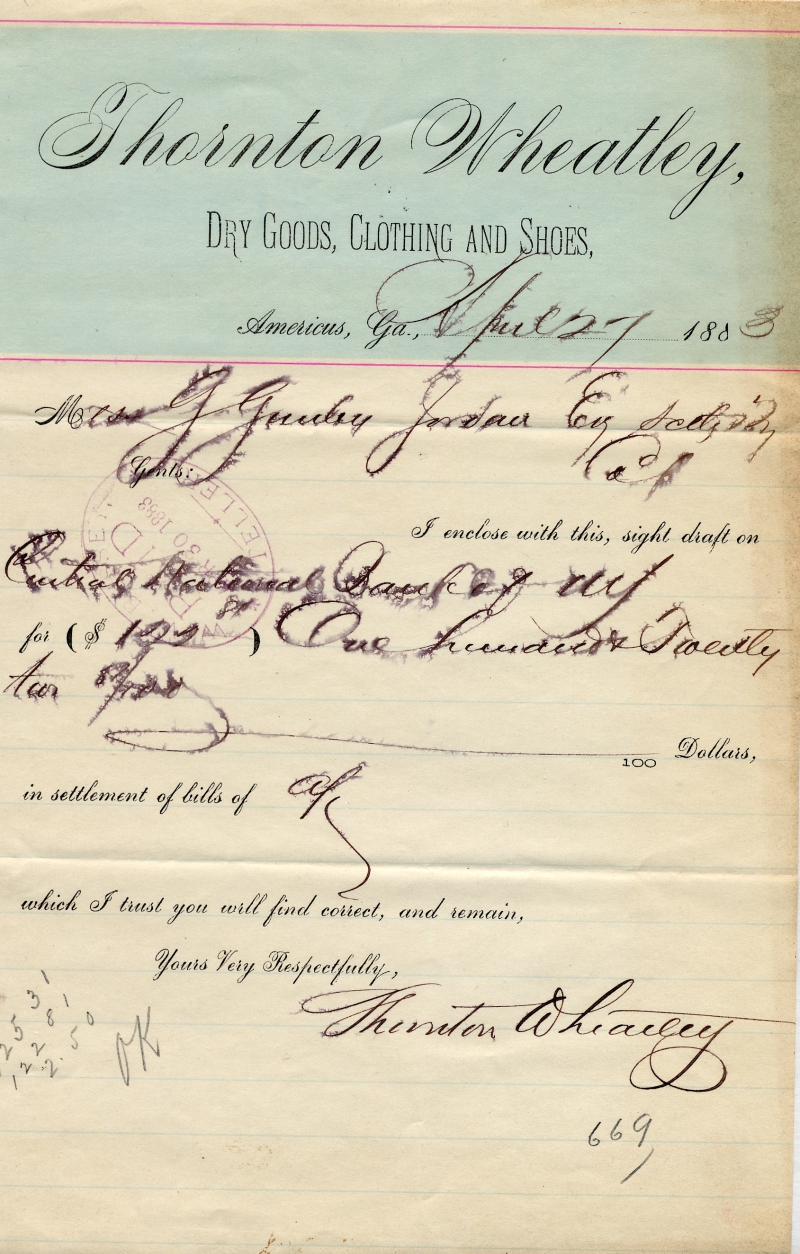 Thornton Wheatley,
DRY GOODS, CLOTHING AND SHOES,
Americus, Ga., April 27 1883
Gurley Jordan
Gents:
TELLER
30 1883
I enclose with this, sight draft on
Central National Bank of NY
for ($ 122 81) One hundred & Twenty
two 81/100
100 Dollars,
in settlement of bills of a/c
which I trust you will find correct, and remain,
Yours Very Respectfully,
Thornton Wheatley
OK
669